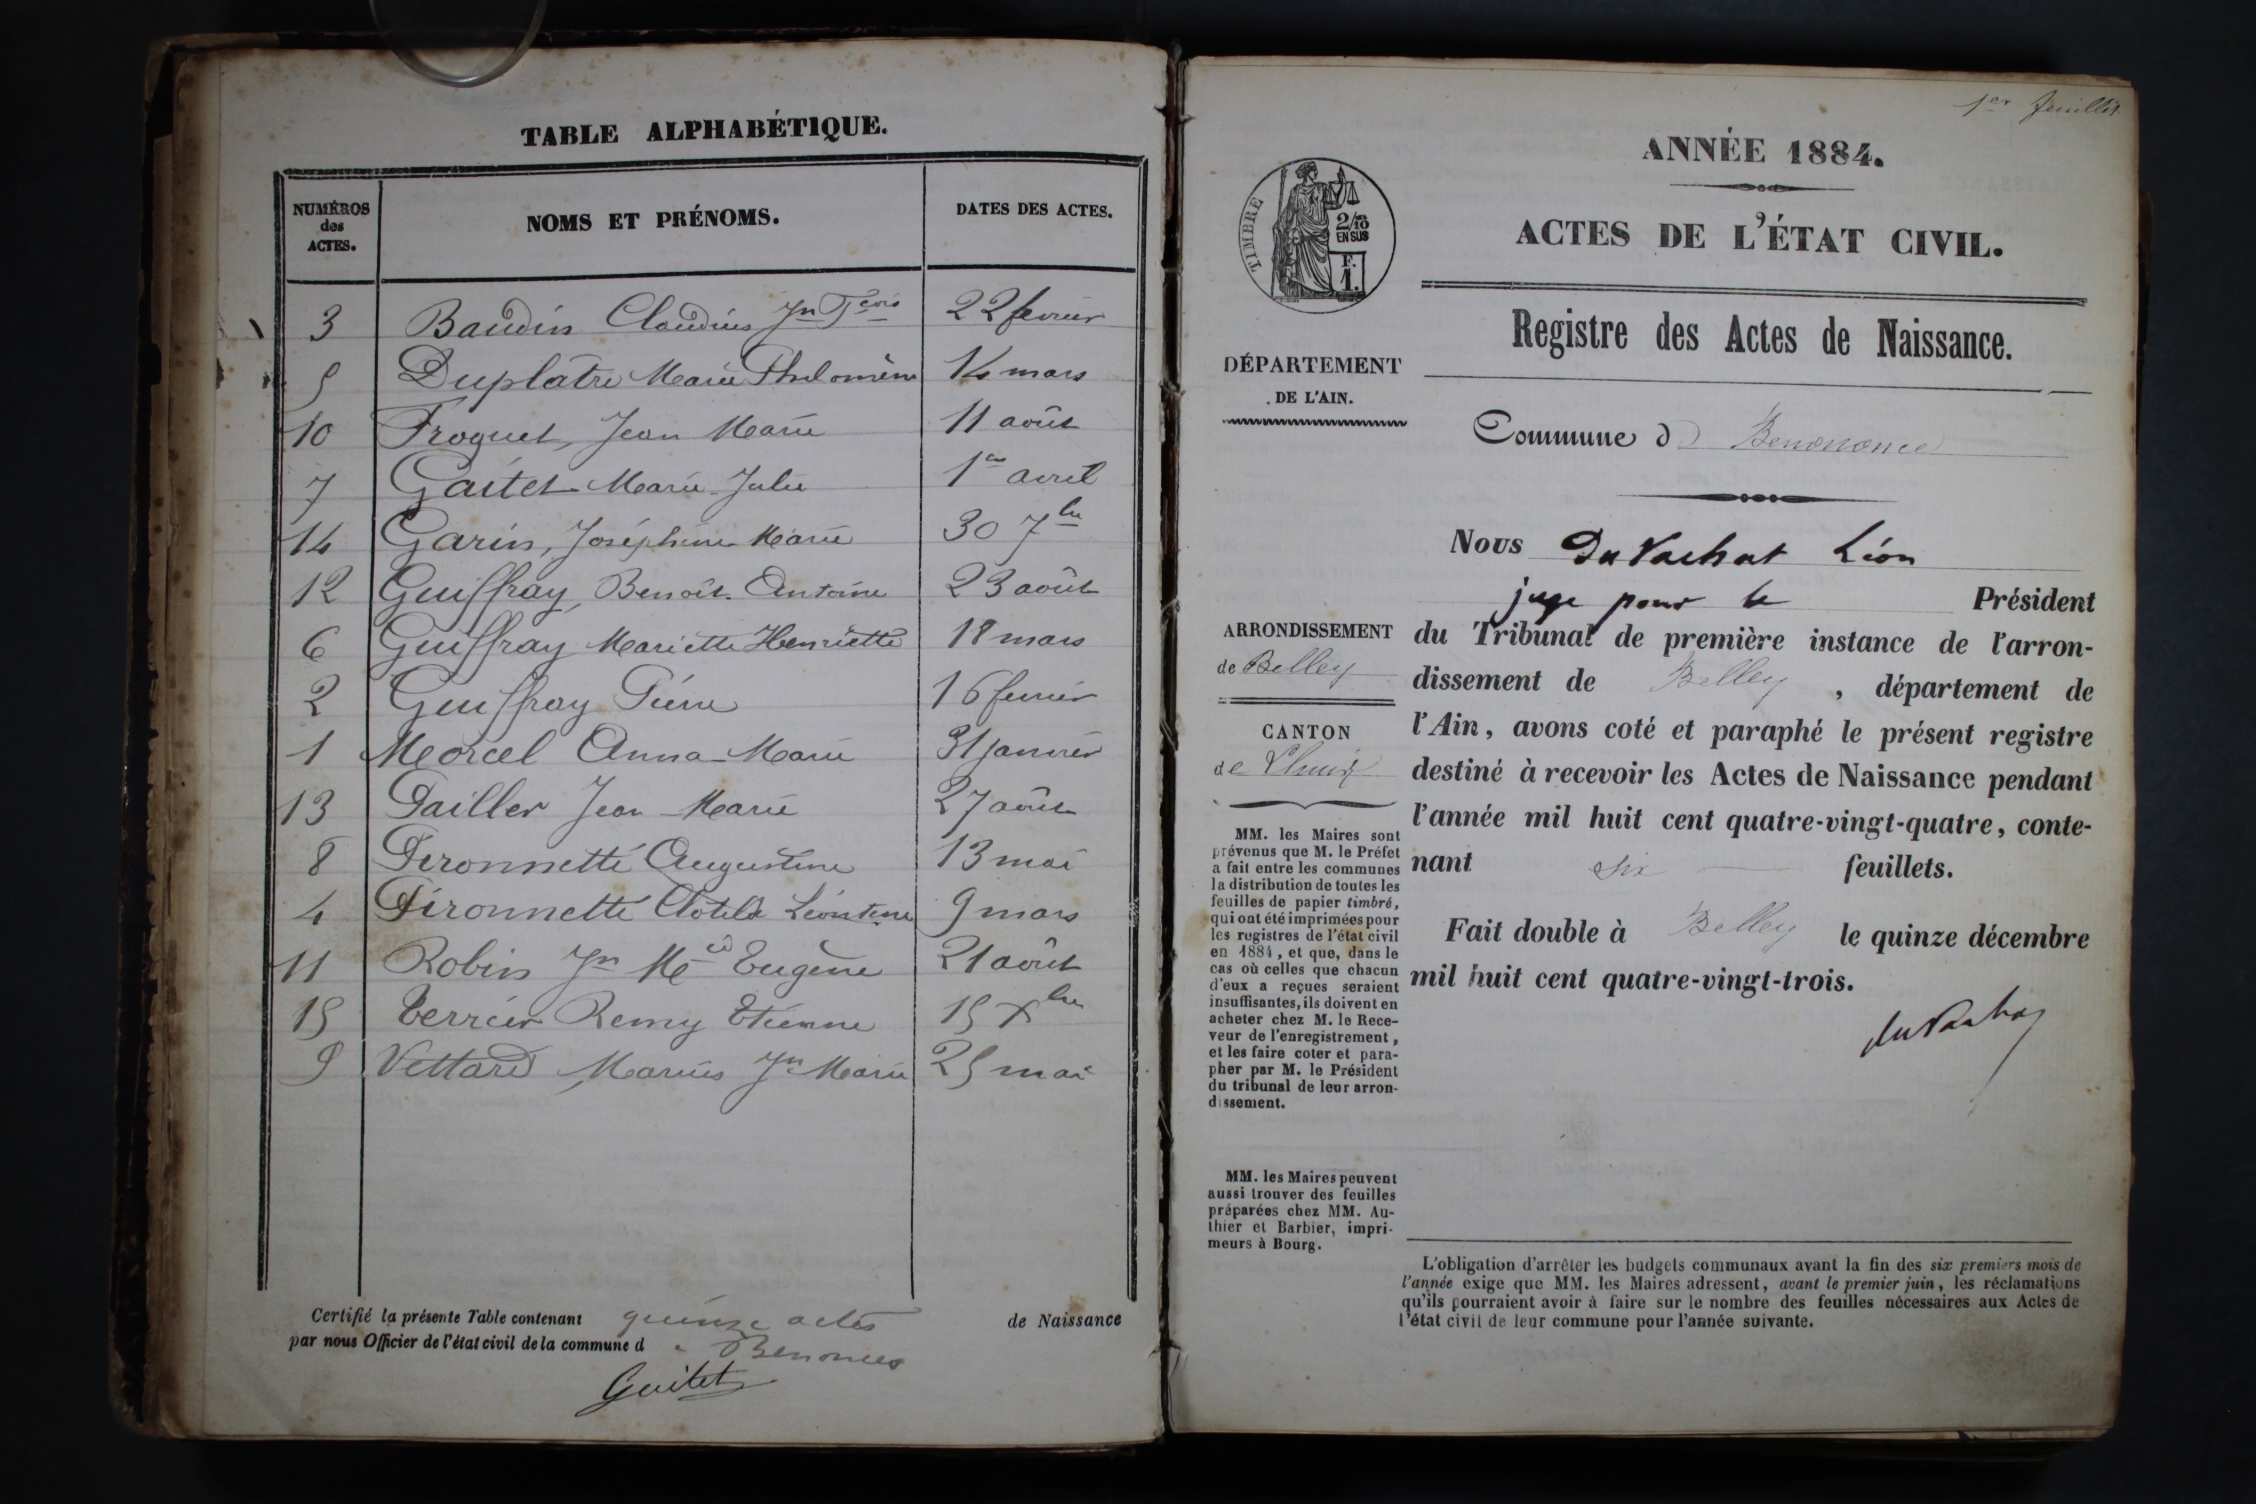 TABLE ALPHABÉTIQUE.
NUMÉROS des ACTES.
NOMS ET PRÉNOMS.
DATES DES ACTES.
3 Baudin Claudius Jn 22 février
5 Duplatre Marie Philomène 14 mars
10 Froquet, Jean Marie 11 août
7 Gaitet Marie Julie 1er avril
14 Garin, Joséphine Marie 30 7bre
12 Guiffray, Benoît Antoine 23 août
6 Guiffray Mariette Henriette 18 mars
2 Guiffray Pierre 16 février
1 Morcel Anna Marie 31 janvier
13 Pailler Jean Marie 27 août
8 Pironnette Augustine 13 mai
4 Pironnette Clotilde Léontine 9 mars
11 Robin Jn Me Eugène 21 août
15 Terrier Remy Etienne 15 Xbre
9 Vettard Marius Jn Marie 25 mai
Certifié la présente Table contenant quinze actes de Naissance
par nous Officier de l'état civil de la commune d Benonces
Guitet
1er feuillet
ANNÉE 1884.
ACTES DE L'ÉTAT CIVIL.
TIMBRE
2/10
EN SUS
F.
1.
Registre des Actes de Naissance.
DÉPARTEMENT
DE L'AIN.
Commune d
Nous Du Vachat Léon
juge pour le Président
du Tribunal de première instance de l'arron-
dissement de Belley, département de
l'Ain, avons coté et paraphé le présent registre
destiné à recevoir les Actes de Naissance pendant
l'année mil huit cent quatre-vingt-quatre, conte-
nant six feuillets.
Fait double à Belley le quinze décembre
mil huit cent quatre-vingt-trois.
du Vachat
ARRONDISSEMENT
de Belley
CANTON
de Lhuis
MM. les Maires sont
prévenus que M. le Préfet
a fait entre les communes
la distribution de toutes les
feuilles de papier timbré,
qui ont été imprimées pour
les registres de l'état civil
en 1884, et que, dans le
cas où celles que chacun
d'eux a reçues seraient
insuffisantes, ils doivent en
acheter chez M. le Rece-
veur de l'enregistrement,
et les faire coter et para-
pher par M. le Président
du tribunal de leur arron-
dissement.
MM. les Maires peuvent
aussi trouver des feuilles
préparées chez MM. Au-
thier et Barbier, impri-
meurs à Bourg.
L'obligation d'arrêter les budgets communaux avant la fin des six premiers mois de
l'année exige que MM. les Maires adressent, avant le premier juin, les réclamations
qu'ils pourraient avoir à faire sur le nombre des feuilles nécessaires aux Actes de
l'état civil de leur commune pour l'année suivante.